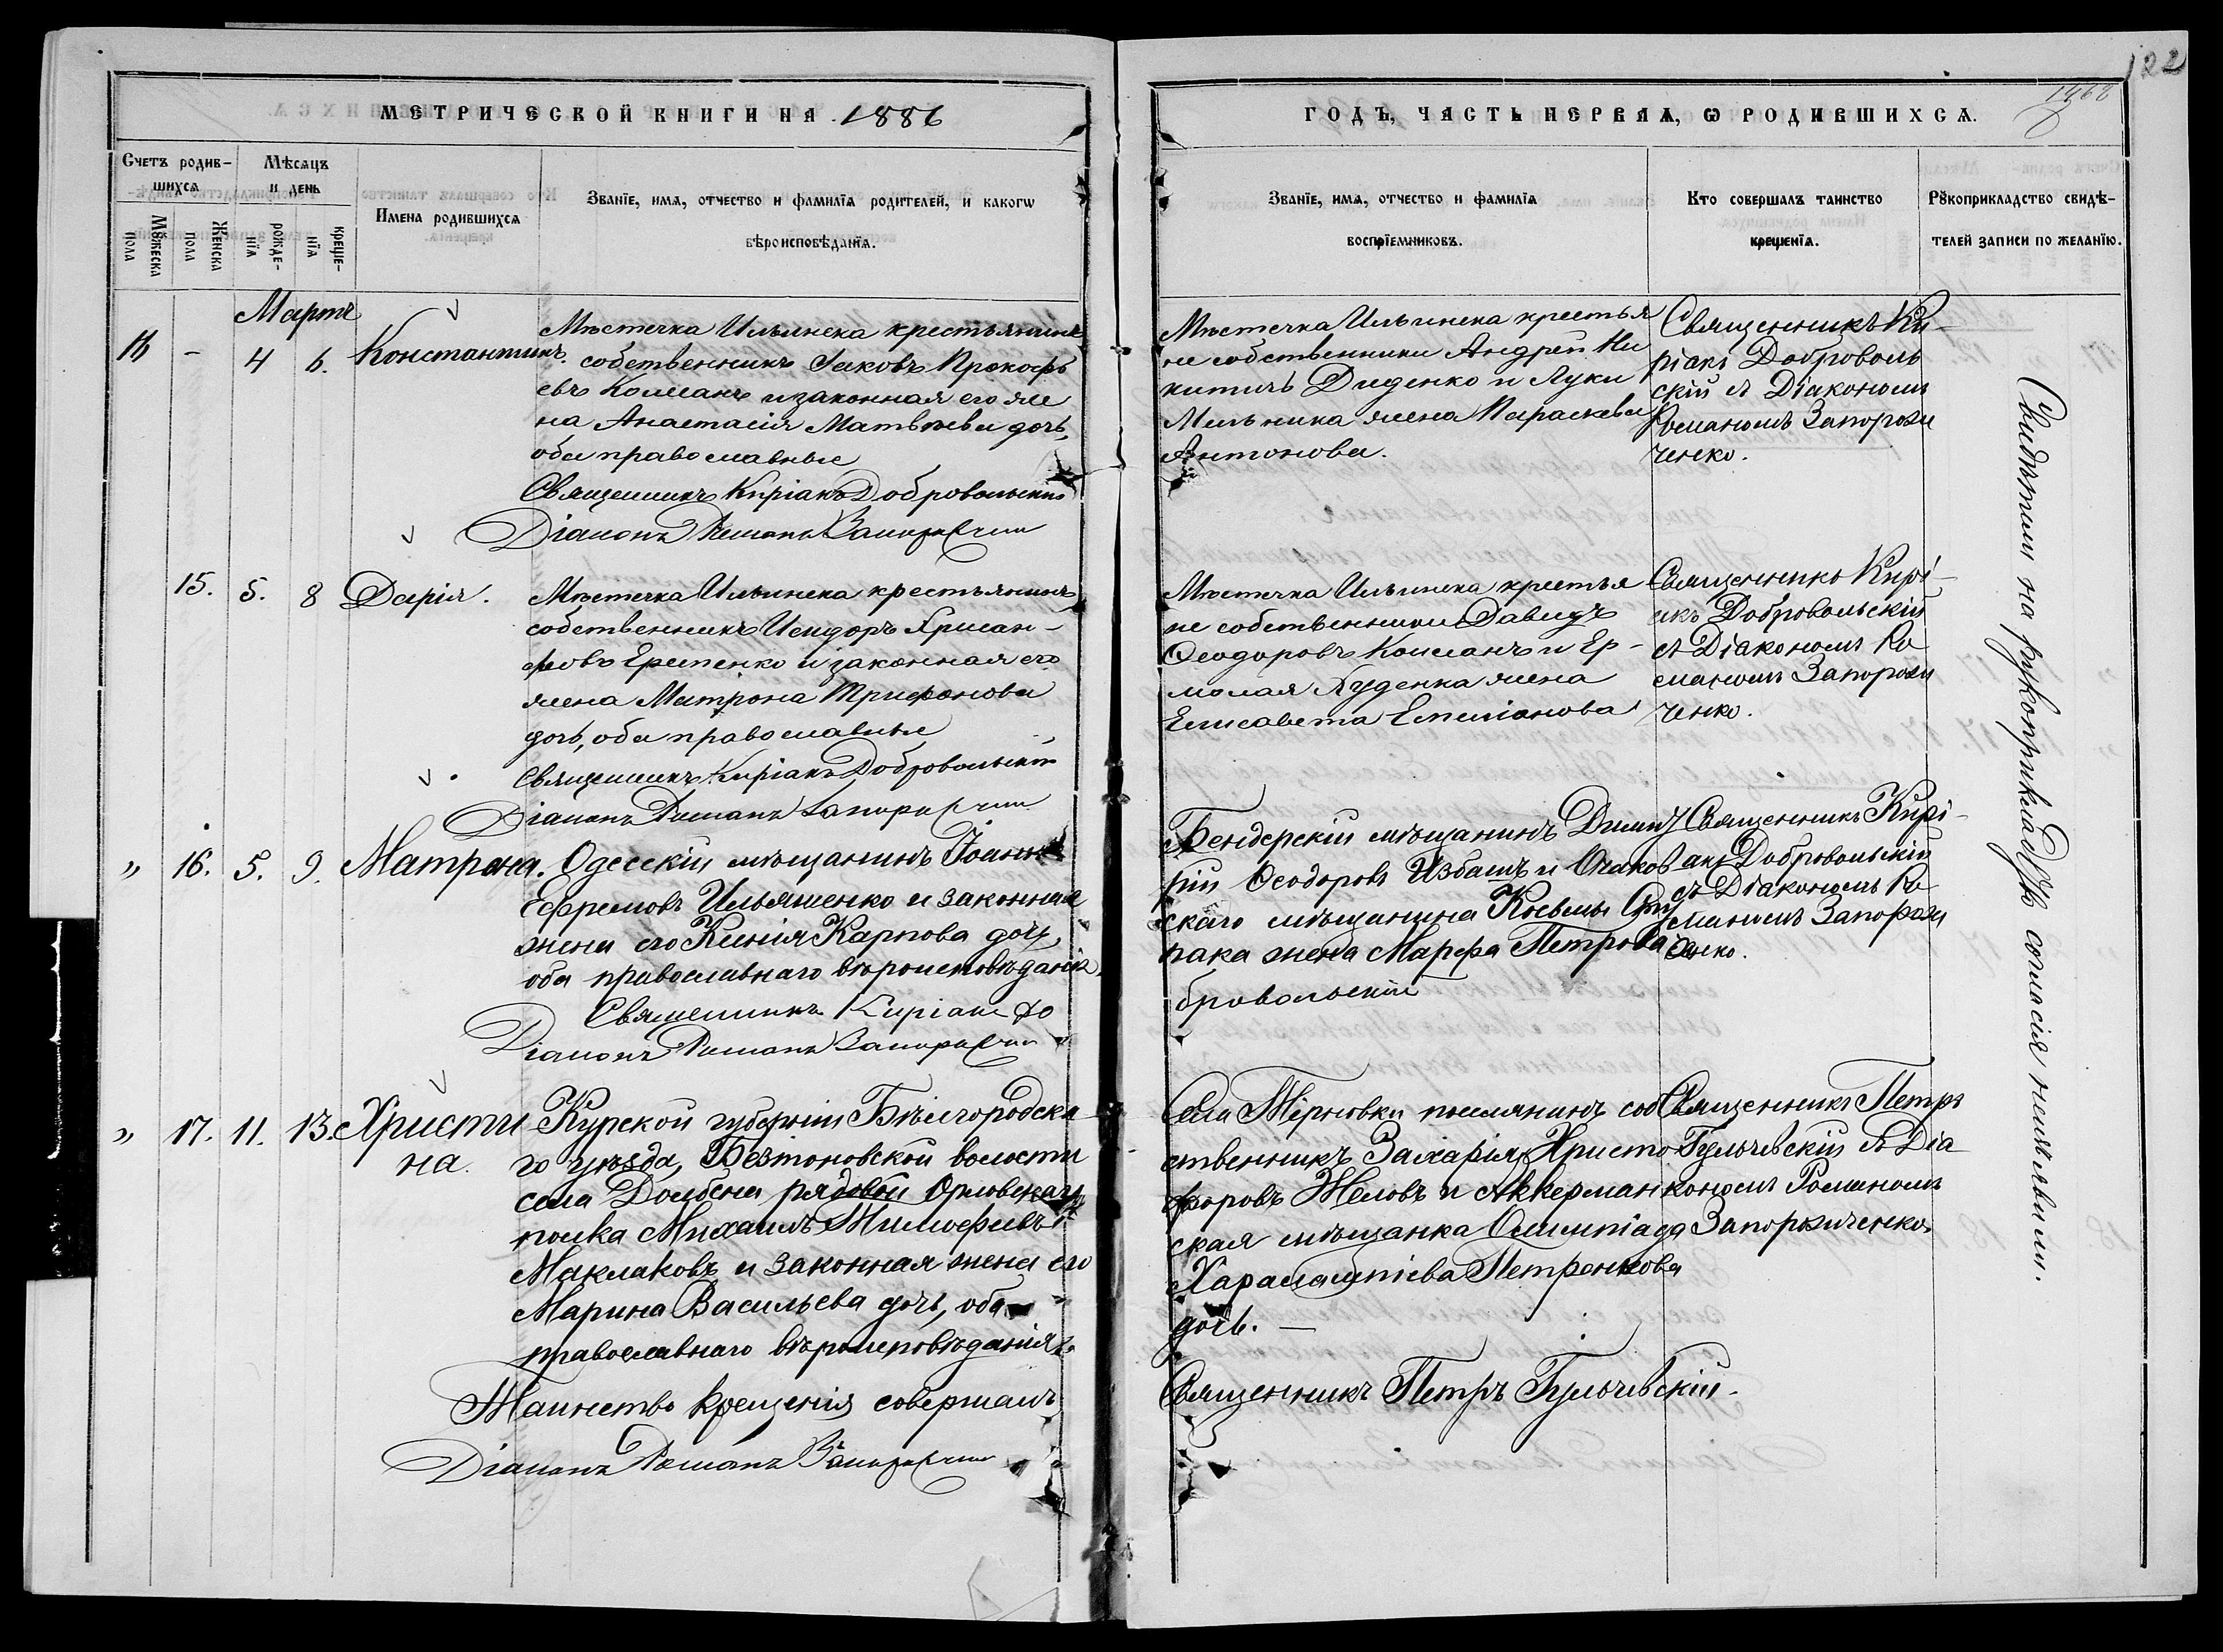 122
1362
МЕТРИЧЕСКОЙ КНИГИ НА 1886
ГОДЪ, ЧАСТЬ ПЕРВАЯ, Ѡ РОДИВШИХСѦ.
Счетъ родив-
шихсѧ
Мѣсѧцъ
и день
Имена родившихсѧ
Званїе, имѧ, отчество и фамилїѧ родителей, и какогѡ
вѣроисповѣданїѧ.
Мꙋжеска
пола
Женска
пола
рожде-
нїѧ
креще-
нїѧ
Званїе, имѧ, отчество и фамилїѧ
воспрїемниковъ.
Кто совершалъ таинство
крещенїѧ.
Рꙋкоприкладство свидѣ-
телей записи по желанїю.
Мартъ
- 4 6. Константинъ.
Мѣстечка Ильинска крестьянинъ
собственникъ Іаковъ Прокофь
евъ Колманъ и законная его же
на Анастасія Матвѣева дочь,
оба православные
Священникъ Киріакъ Добровольскій
Діаконъ Романъ Запорожчен
Мѣстечка Ильинска крестья
не собственники Андрей Ни
китичъ Диденко и Луки
Мельника жена Параскева
Антонова.
Священникъ Ки-
ріакъ Доброволь
скій съ Діакономъ
Романомъ Запорожи
ченко.
15. 5. 8 Дарія.
Мѣстечка Ильинска крестьянинъ
собственникъ Исидоръ Хрисан-
фовъ Еременко и законная его
жена Матрона Трифонова
дочь, оба православные
Священникъ Киріакъ Добровольскій
Діаконъ Романъ Запорожчен
Мѣстечка Ильинска крестья
не собственники Давидъ
Ѳеодоровъ Колманъ и Ер-
молая Худенка жена
Елисавета Емелианова
Священникъ Кирі-
акъ Добровольскій
съ Діакономъ Ро
маномъ Запорожи
ченко.
" 16. 5. 9. Матрона.
Одесскій мѣщанинъ Іоаннъ
Ефремовъ Ильяшенко и законная
жена его Ксенія Карпова дочь,
оба православнаго вѣроисповѣданія.
Священникъ Киріакъ До
Діаконъ Романъ Запорожчен
Бендерскій мѣщанинъ Дими
рій Ѳеодоровъ Избашъ и Очаков
скаго мѣщанина Косьмы Сту
пака жена Марфа Петрова
бровольскій
Священникъ Кирі-
акъ Добровольскій
съ Діакономъ Ро
маномъ Запорожи
ченко.
" 17. 11. 13. Христи
на.
Курской губерніи Бѣлгородска
го уѣзда, Безтоновской волости
села рядовой Орловскаго
полка Михаилъ
Маклаковъ и законная жена его
Марина Васильева дочь, оба
православнаго вѣроисповѣданія.
Таинство Крещенія совершалъ
Діаконъ Романъ Запорожчен
Села Терновки поселянинъ соб
ственникъ Захарія Христо
форовъ Желовъ и Аккерман
ская мѣщанка Олимпіада
Харалампіева Петренкова
дочь. —
Священникъ Петръ Гульчевскій.
Священникъ Петръ
Гульчевскій съ Діа
кономъ Романомъ
Запорожиченко.
Свидѣтели на рукоприкладство согласія неизъявили.